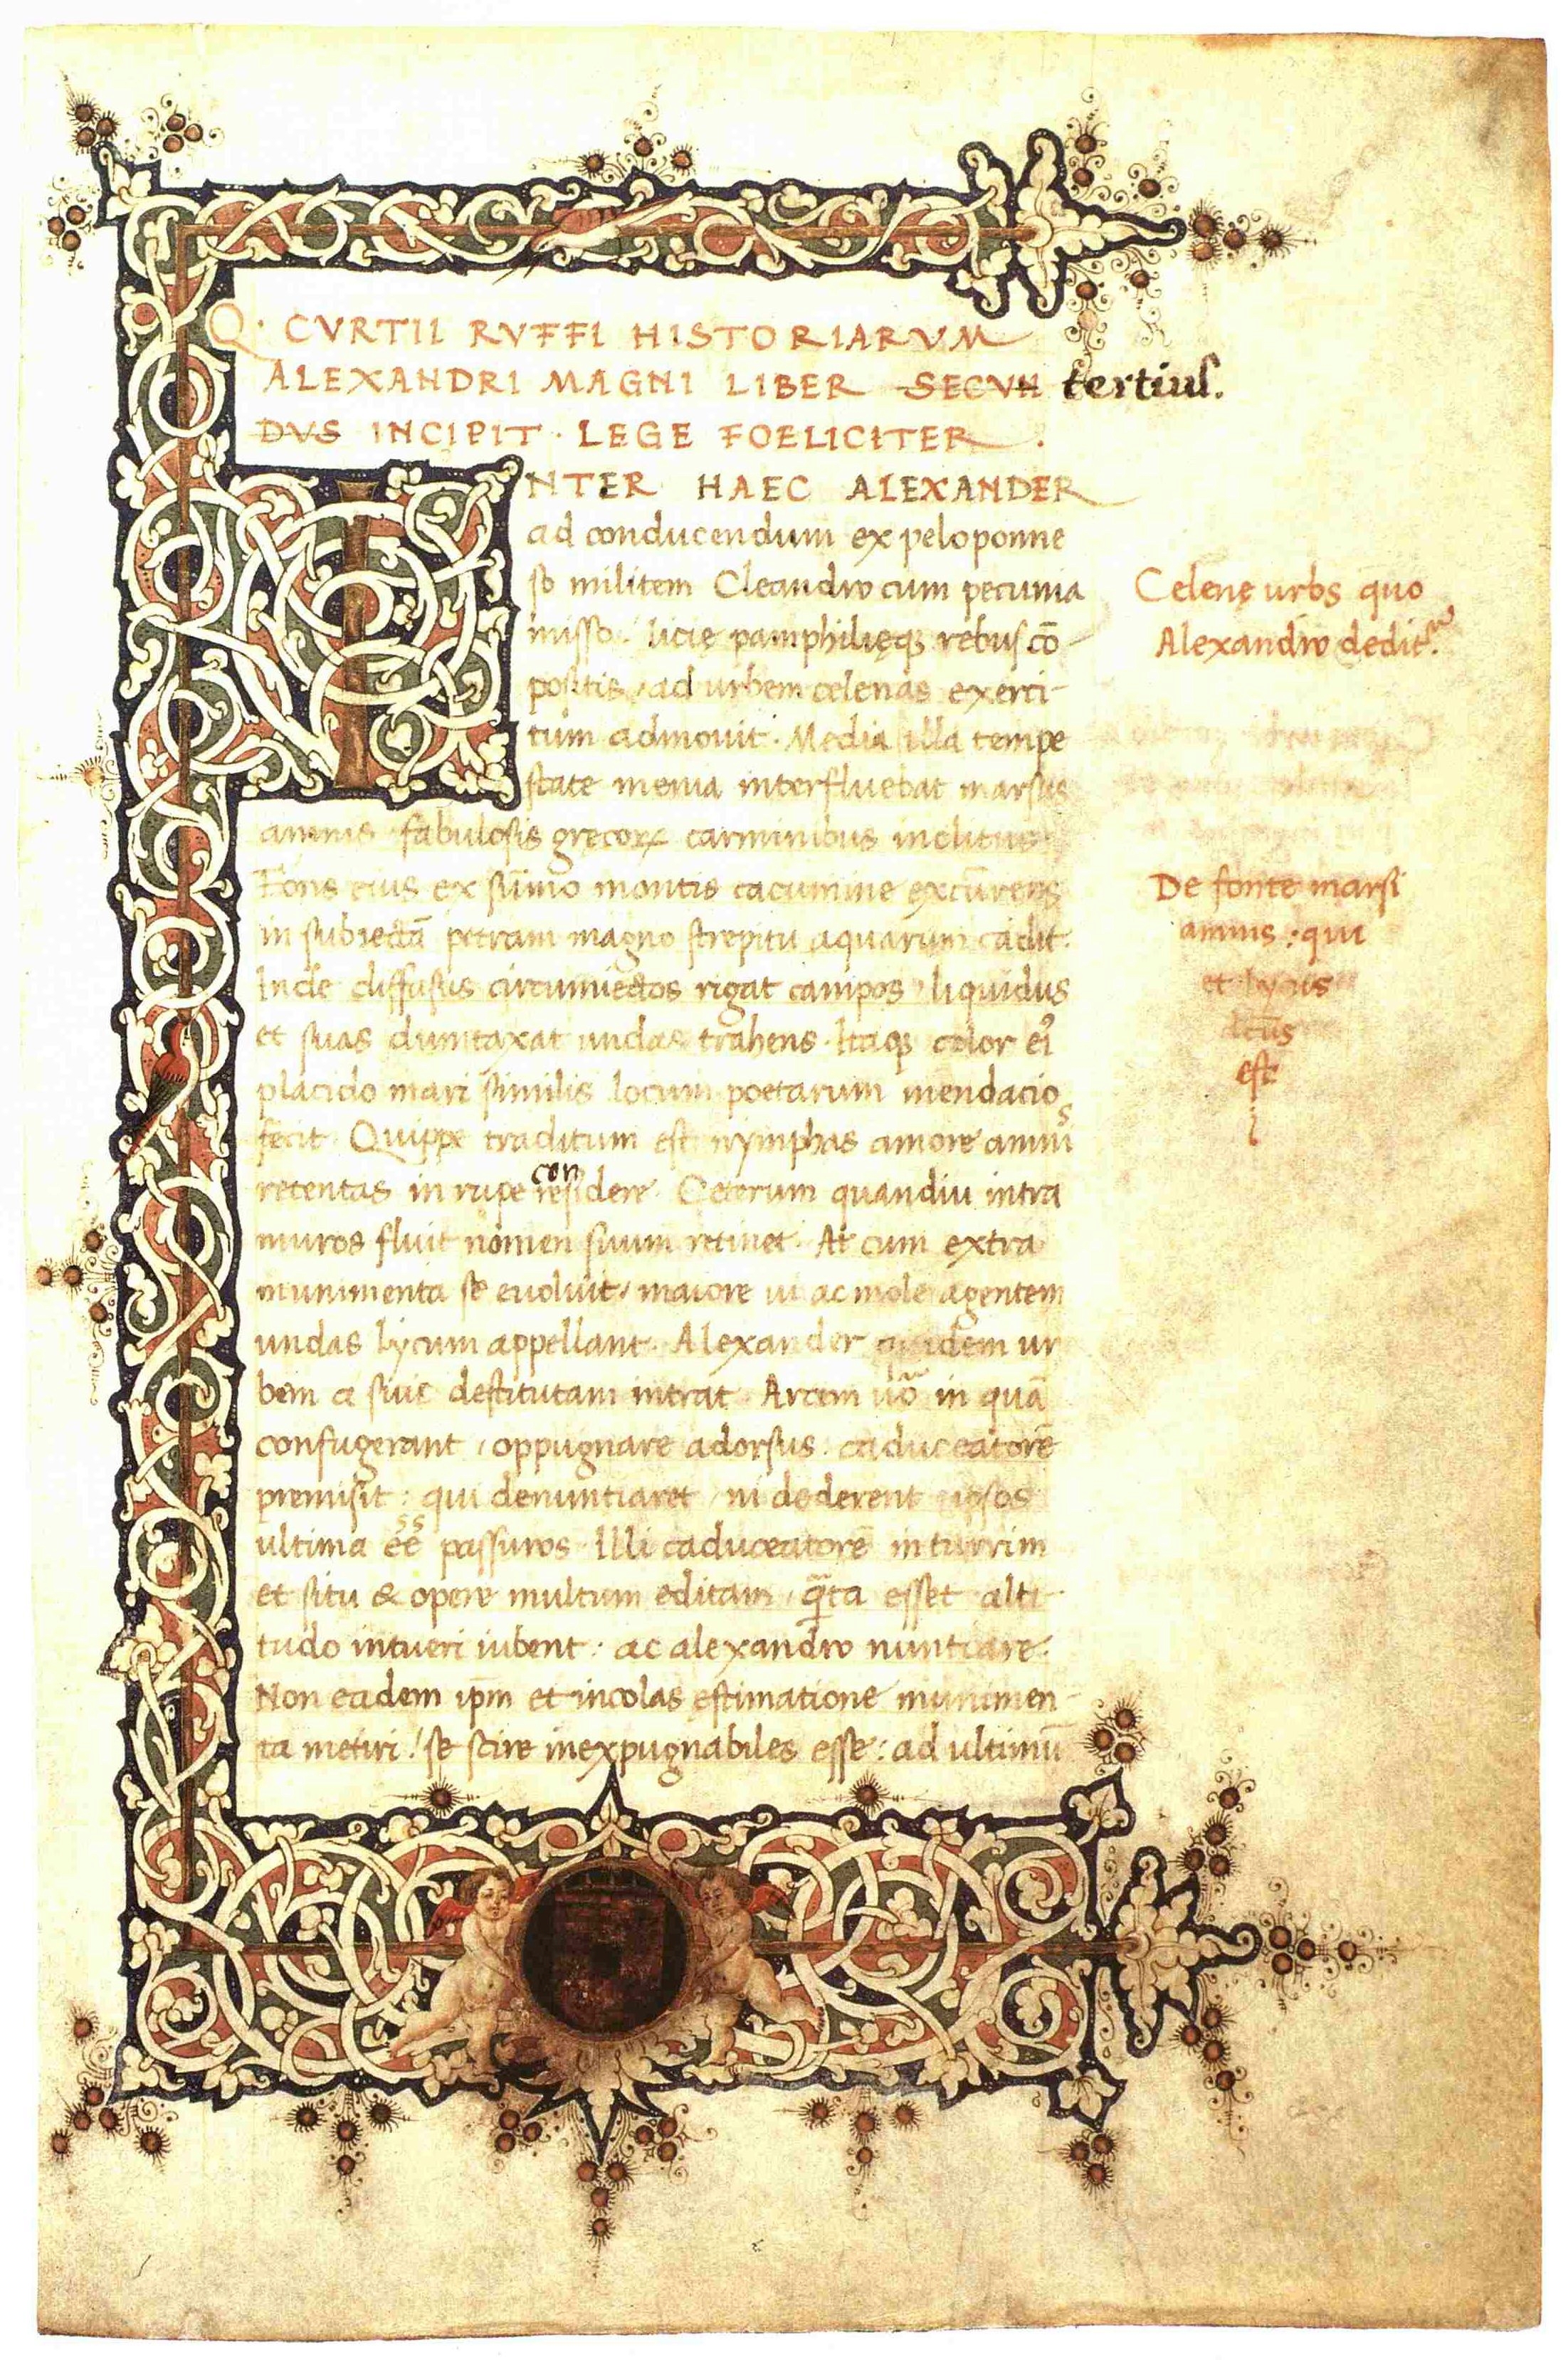 Q. CVRTII RVFFI HISTORIARVM
ALEXANDRI MAGNI LIBER SECVN tertius.
DVS INCIPIT. LEGE FOELICITER.
INTER HAEC ALEXANDER
ad conducendum ex peloponne
so militem Cleandro cum pecunia
misso. licię pamphilięq; rebus cō-
positis, ad urbem celenas exerci-
tum admouit. Media illa tempe
state menia interfluebat marsus
amnis fabulosis gręcoꝝ carminibus inclitus
Fons eius ex sūmo montis cacumine excūrens
in subiectā petram magno strepitu aquarum cadit.
Inde diffusus circumiectos rigat campos, liquidus
et suas dumtaxat undas trahens. Itaq; color eiꝰ
placido mari similis locum poetarum mendacio
fecit Quippe traditum est nymphas amore amnis
retentas in rupe con residere. Ceterum quandiu intra
muros fluit nomen suum retinet. At cum extra
munimenta se euoluit, maiore ui ac mole agentem
undas lycum appellant. Alexander quidem ur
bem a suis destitutam intrat. Arcem uō in quā
confugerant, oppugnare adorsus. caduceatorē
premisit: qui denuntiaret, ni dederent ipsos
ultima eē ss passuros. Illi caduceatorē in turrim
et situ & opere multum editam, q̄ta esset alti-
tudo intueri iubent: ac alexandro nuntiare.
Non eadem ip̄m et incolas estimatione munimen-
ta metiri! se scire inexpugnabiles esse: ad ultimū
Celenę urbs quo
Alexandro dedit.
De fonte marsi
amnis: qui
et lycus
dcūs
est